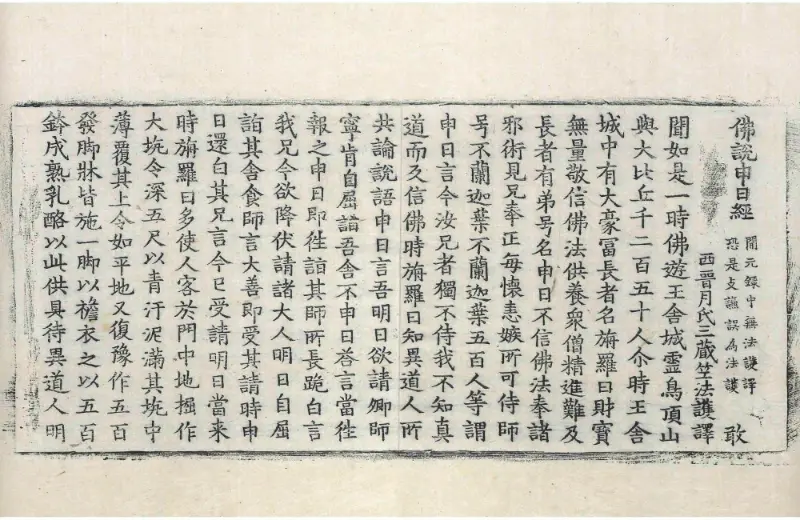 佛說申日經 開元錄中無法護譯 敢
恐是支謙誤為法護
西晉月氏三藏竺法護譯
聞如是一時佛遊王舍城靈鳥頂山
與大比丘千二百五十人尒時王舍
城中有大豪冨長者名旃羅日財寶
無量敬信佛法供養衆僧精進難及
長者有弟号名申日不信佛法奉諸
邪術見兄奉正每懷恚嫉所可侍師
号不蘭迦葉不蘭迦葉五百人等謂
申日言今汝兄者獨不待我不知真
道而反信佛時旃羅日知異道人所
共論說語申日言吾明日欲請卿師
寧肯自屈詣吾舍不申日荅言當徃
報之申日即徃詣其師所長跪白言
我兄今欲降伏請諸大人明日自屈
詣其舍食師言大善即受其請時申
日還白其兄言今已受請明日當來
時旃羅日多使人客於門中地掘作
大坑令深五尺以青汙泥滿其坑中
薄覆其上令如平地又復豫作五百
發脚牀皆施一脚以襜衣之以五百
鉢成熟乳酪以此供具待異道人明